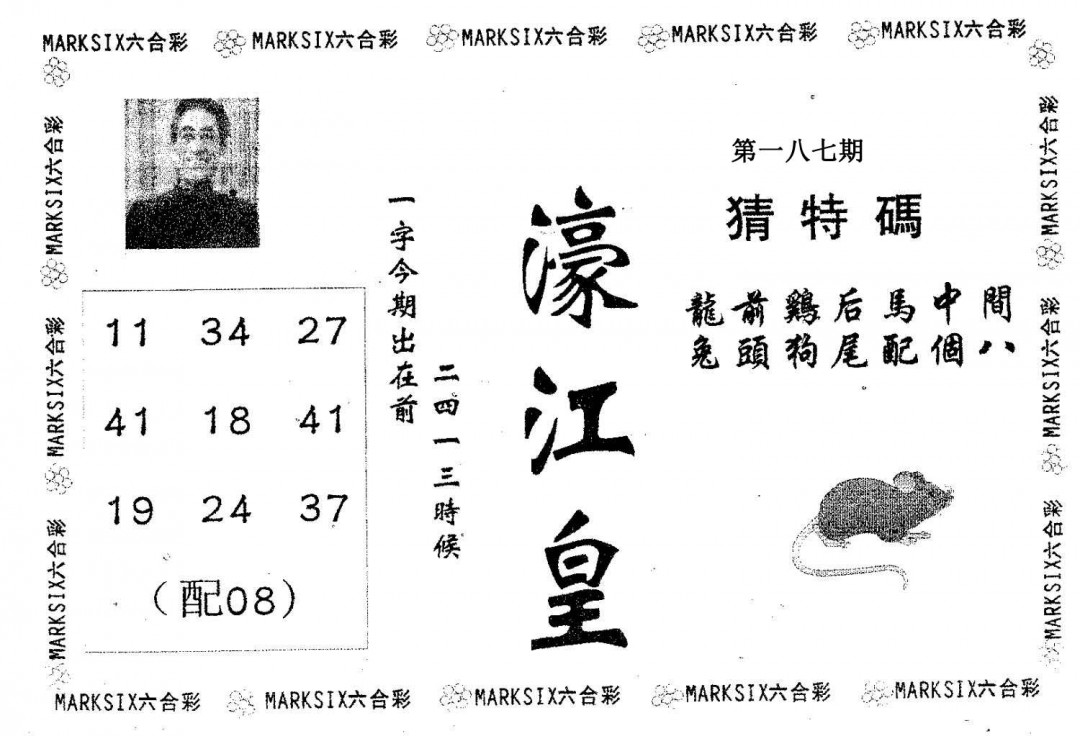 MARKSIX六合彩 MARKSIX六合彩 MARKSIX六合彩 MARKSIX六合彩 MARKSIX六合彩
MARKSIX六合彩
MARKSIX六合彩
MARKSIX六合彩
第一八七期
猜特碼
龍前鷄后馬中間
兔頭狗尾配個八
濠江皇
一字今期出在前
二四一三時候
11 34 27
41 18 41
19 24 37
(配08)
MARKSIX六合彩
MARKSIX六合彩
MARKSIX六合彩
MARKSIX六合彩 MARKSIX六合彩 MARKSIX六合彩 MARKSIX六合彩 MARKSIX六合彩